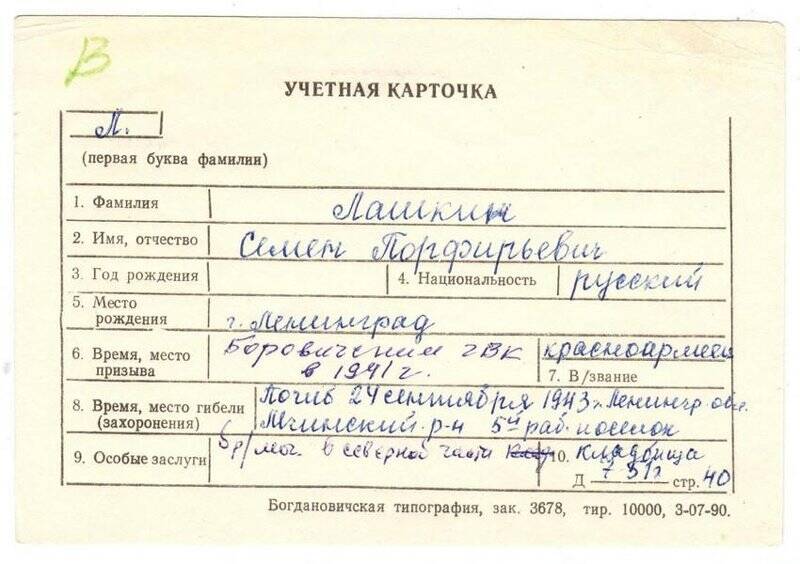 В
УЧЕТНАЯ КАРТОЧКА
Л.
(первая буква фамилии)
1. Фамилия Лашкин
2. Имя, отчество Семен Порфирьевич
3. Год рождения 4. Национальность русский
5. Место рождения г. Ленинград
6. Время, место призыва Боровичским ГВК в 1941 г.
красноармеец
7. В/звание
8. Время, место гибели (захоронения) Погиб 24 сентября 1943 г. Ленингр. обл.
Мгинский р-н 5й раб. поселок
9. Особые заслуги бр/мог. в северной части
10. кладбища
Д стр. 40
Богдановичская типография, зак. 3678, тир. 10000, 3-07-90.